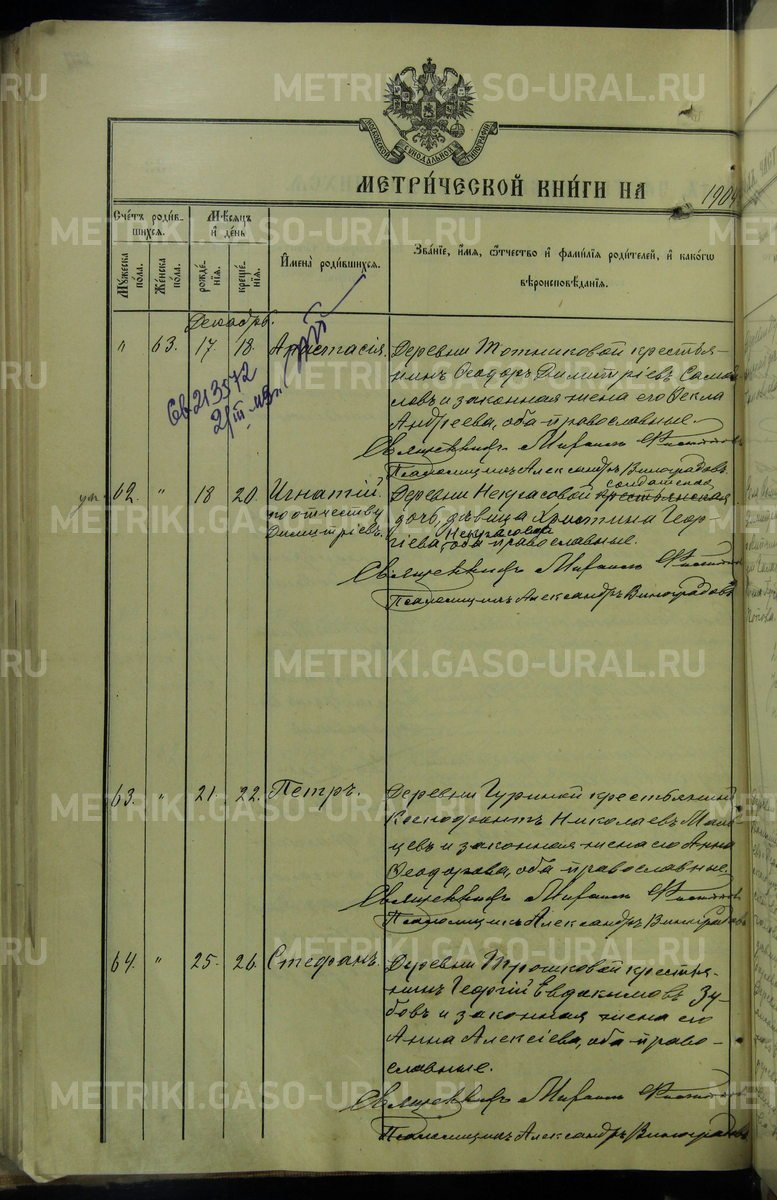 METRIKI.GASO-URAL.RU
МОСКОВСКОЙ СѴНОДАЛЬНОЙ ТИПОГРАФІИ
МЕТРИ́ЧЕСКОЙ КНИ́ГИ НА 1904
Сче́тъ роди́в-
шихсѧ.
Мꙋ́жеска по́ла.
Же́нска по́ла.
Мѣ́сѧцъ
и҆ де́нь
рожде́-
нїѧ.
креще́-
нїѧ.
И҆мена̀ роди́вшихсѧ.
Зва́нїе, и҆́мѧ, ѻ҆́тчество и҆ фами́лїѧ роди́телей, и҆ како́гѡ
вѣроисповѣ́данїѧ.
Декабрь.
" 63. 17 18. Анастасія.
Деревни Тотниковой крестья-
нинъ Ѳеодоръ Димитріевъ
и законная жена его Ѳекла
Андреева, оба православные.
Священникъ
Псаломщикъ Александръ Виноградовъ.
Св 213572
2/III
62. " 18 20. Игнатій.
по отчеству
Димитріевъ.
солдатская
Деревни Некрасовой крестьянская
дочь, дѣвица Христина Геор-
гіева Некрасова, оба православные.
Священникъ
Псаломщикъ Александръ Виноградовъ
63. " 21. 22. Петръ.
Деревни Гуриной крестьянинъ
Ксенофонтъ Николаевъ Маль-
цевъ и законная жена его Анна
Ѳеодорова, оба православные.
Священникъ
Псаломщикъ Александръ Виноградовъ
64. " 25. 26. Стефанъ.
Деревни Трошковой крестья-
нинъ Георгій Евдокимовъ Зу-
бовъ и законная жена его
Анна Алексіева, оба право-
славные.
Священникъ
Псаломщикъ Александръ Виноградовъ